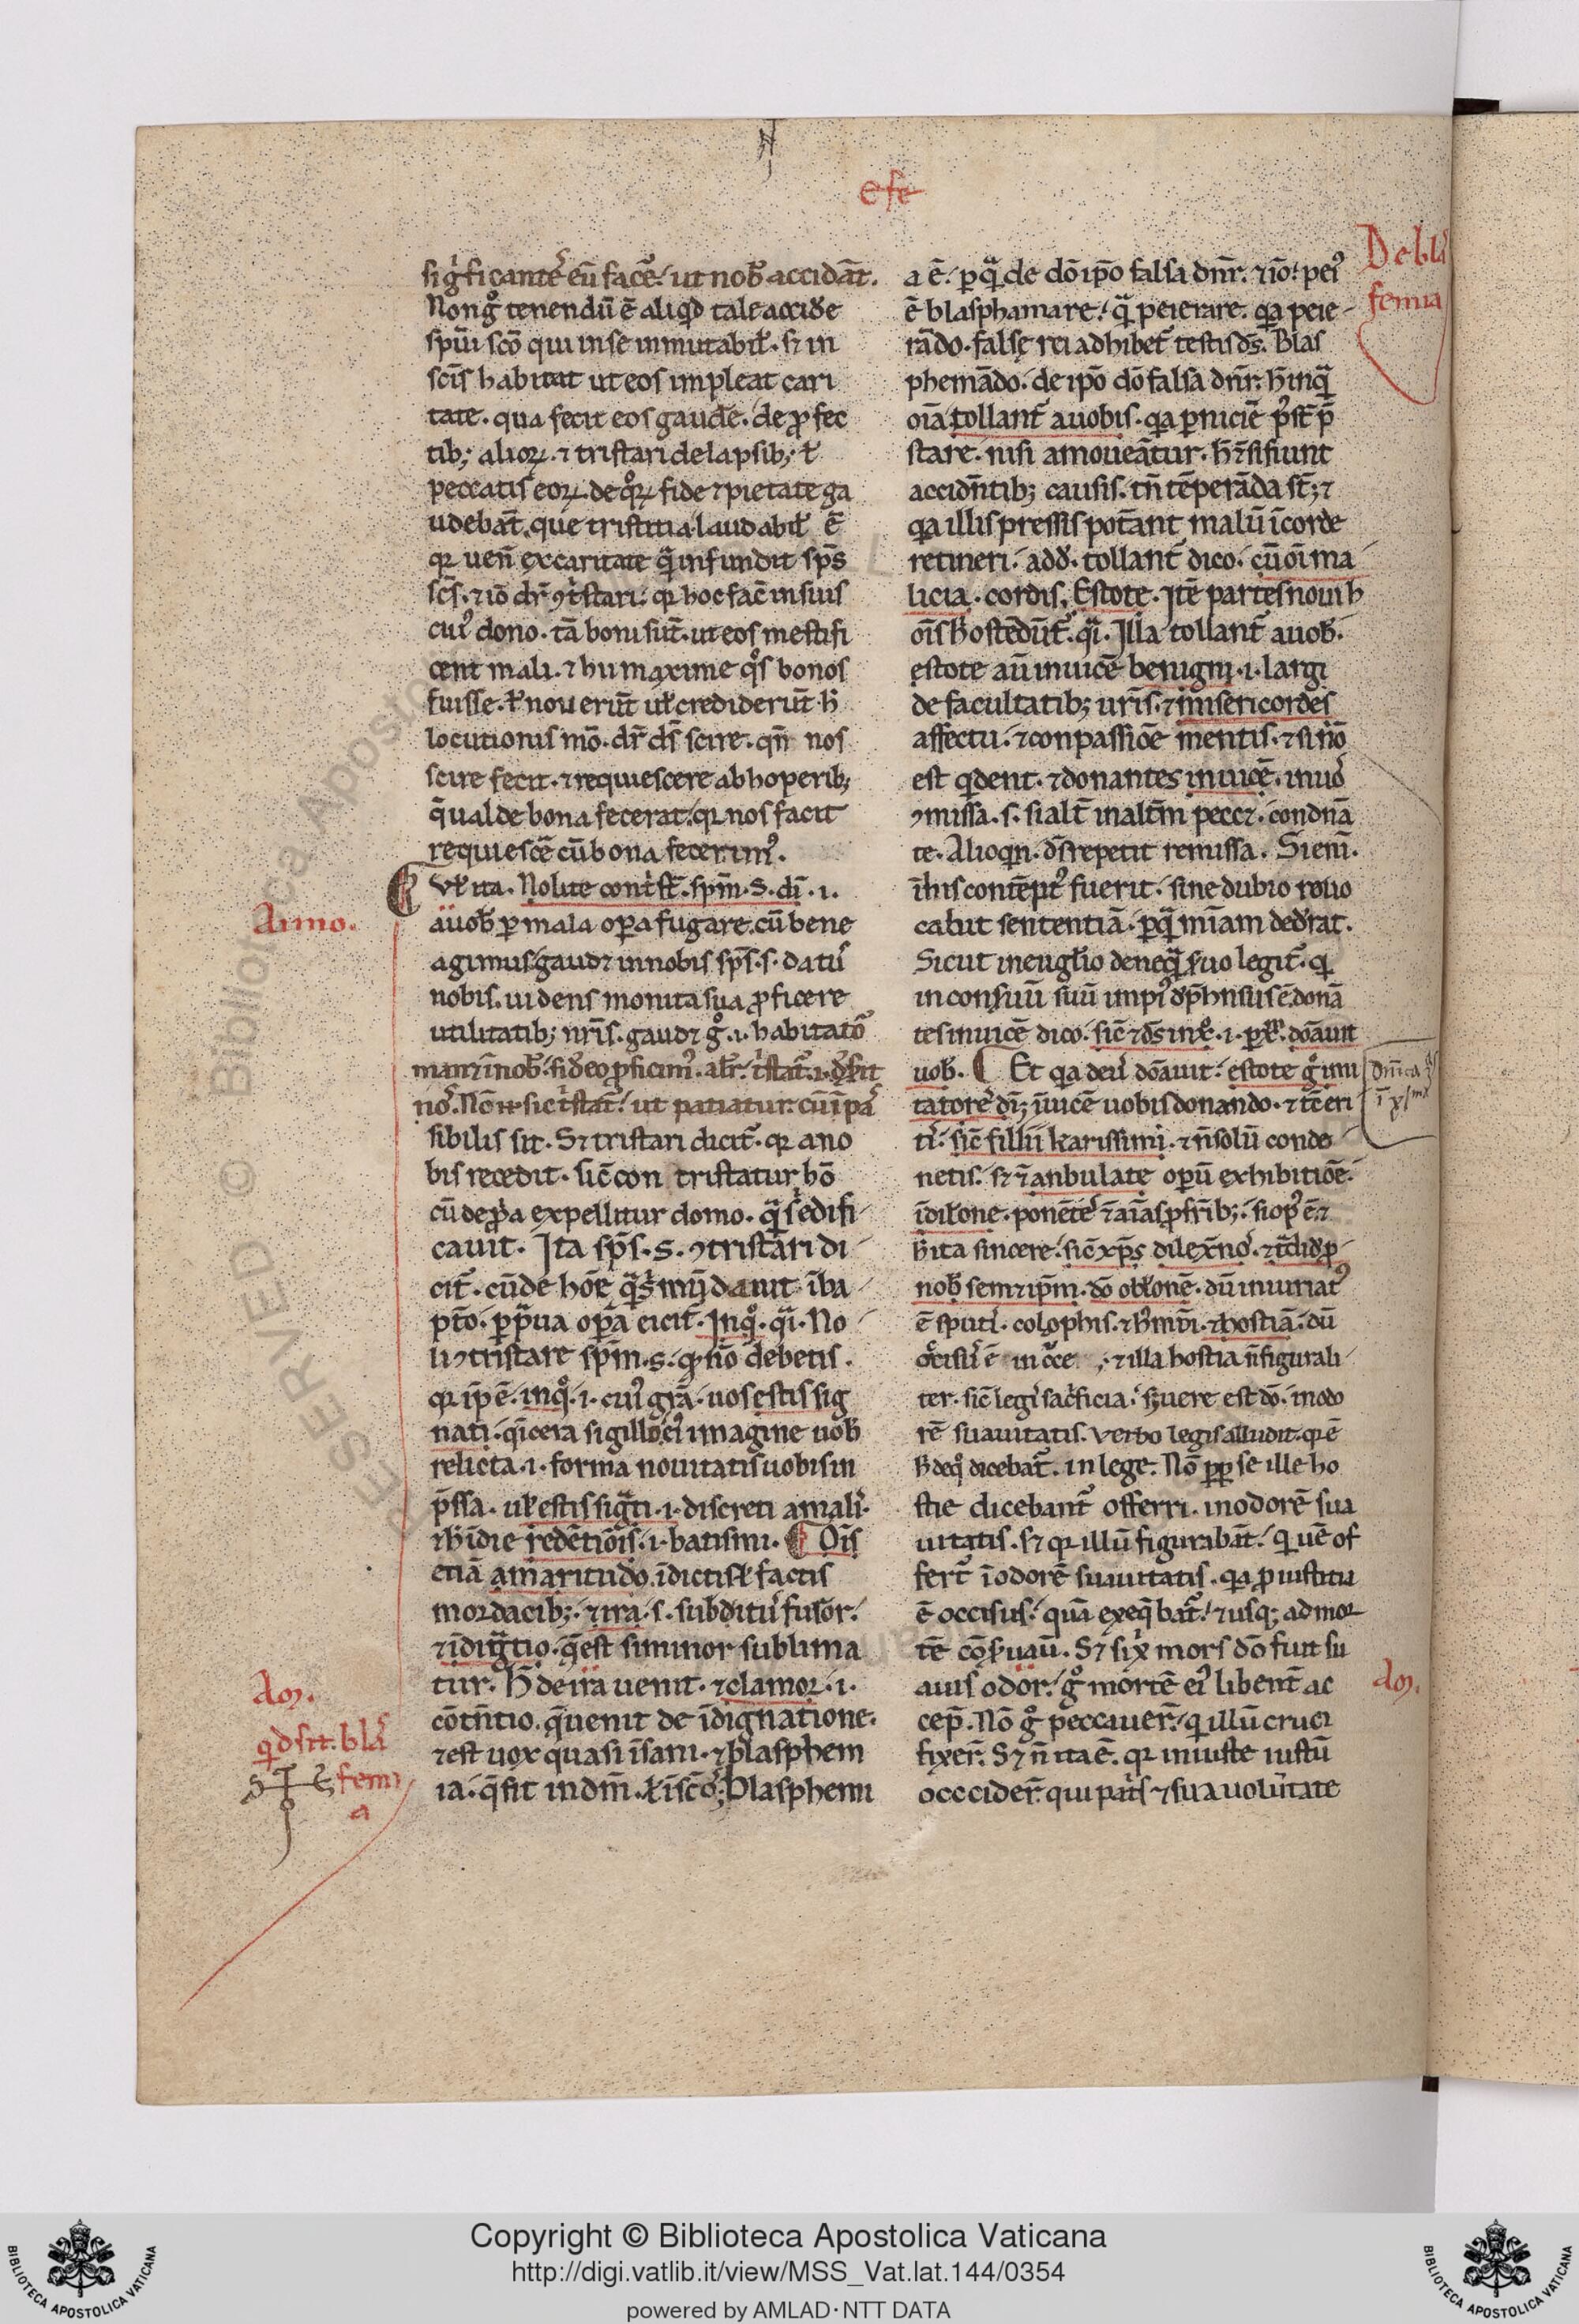 efe
sig̾ficante᷒ eũ face᷒. ut nob᷒ accidãt.
Non g̊ tenendũ ẽ aliqd tale acciđe
spũi scõ qui in se inmutabil᷒. sꝫ in
scĩs habitat ut eos impleat cari
tate. qua fecit eos gaude᷒. de ꝓfec
tibꝫ alioꝝ. ⁊ tristari de lapsibꝫ ł
peccatis eoꝝ. de qͦꝝ fide ⁊ pietate ga
udebãt. que tristitia laudabil᷒ ẽ
qꝛ ueñ ex caritate q̃ infundit sp̃s
sc̃s. ⁊ iõ dr̃ ꝯtͥstari. qꝛ hoc fac̃ in suis
cuiꝰ dono. tã boni sũt. ut eos mestifi
cent mali. ⁊ hii maxime qͦs bonos
fuisse. ł nouerũt uł crediderũt. h̃
locutionis mõ. dr̃ ds̃ scire. qñ nos
scire fecit. ⁊ requiescere ab hoperibꝫ
q̃ ualde bona fecerat. qꝛ nos facit
requiesce᷒ cũ bona fecerimꝰ.
Vł ita. Nolite contͥst᷒. spm̃. S. dĩ. i.
Anno.
a uob᷒ ꝑ mala oꝑa fugare. cũ bene
agimus gaudꝫ in nobis sp̃s. s. datꝰ
nobis. uidens monita sua ꝓficere
utilitatibꝫ nr̃is. gaudꝫ g̊. i. habitatõ
manꝫ ĩ nob᷒. si đ eo ꝓficimꝰ.
sibilis sit. Sꝫ tristari dicit᷒. qꝛ a no
bis recedit. sic̃ con tristatur hõ
cũ de ꝓpͥa expellitur domo. q̃ s᷒ edifi
cauit. Ita sp̃s. s. ꝯtristari di
cit᷒. cũ de hõe
pt̃o. ꝑ praua oꝑa eicit᷒. In qͦ. q̃i. No
li ꝯtristare spm̃. s. qꝛ nõ debetis.
qꝛ ip̃e ẽ. in qͦ. i. cuiꝰ gr̃a. uos estis sig
nati. q̃i cera sigillo eiꝰ imagine uob᷒
relicta. i. forma nouitatis uobis in
p̃ssa. uł estis sig̃ti. i. discreti a malͥ.
⁊ h̃ ĩ die redẽtiõis. i. batismi. Oĩs
etiã amaritudo. ĩ dictis ł factis
mordacibꝫ. ⁊ ira. s. subditus furor.
⁊ ĩdig̃tio. q̃ est si minor sublima
tur. H̃ de ira uenit. ⁊ clamor. i.
cõtñtio. q̃ uenit de ĩdignatione.
⁊ est uox quasi ĩsani. ⁊ blasphem
ia. q̃ fit in dm̃. ł ĩ sc̃os. Blasphemi
qd sit. blas
femi
a
De blas
femia
a ẽ. ꝑ q̃ de dõ ip̃o falsa dnr̃. ⁊ iõ. peiꝰ
ẽ blasphamare. q̃ peierare. qa peie
rãdo. false rei adhibet᷒ testis ds̃. Blas
phemãdo. de ip̃o dõ falsa dnr̃. h̃ inq̃
oĩa tollant᷒ a uobis. qa ꝑniciẽ
stare. nisi amoueãtur. h̃ ⁊ si fiunt
accidñtibꝫ causis. tñ tẽperãda st̃ ⁊
qa illis pressis potãnt malũ ĩ corde
retineri. add᷒. tollant᷒ dico. cũ oĩ ma
licia. cordis. Estote. Itẽ partes noui h
oĩs h̃ ostẽdũt᷒. q̃i. Illa tollant᷒ a uob᷒.
estote aũ inuicẽ benigni. i. largi
de facultatibꝫ ur̃is. ⁊ misericordes
affectu. ⁊ conpassiõe mentis. ⁊ si nõ
est qd dent. ⁊ donantes inuicẽ. in uos
ꝯmissa. s. si alt᷒ in altm̃ peccꝫ. condnã
te. Alioqn. ds̃ repetit remissa. Si eni᷒.
ĩ his contẽptꝰ fuerit. sine dubio reuo
cabit sententiã. ꝑ q̃ mĩam dedͣat.
Sicut in eugl᷒io de neq̃ suo legit᷒. qꝛ
in consuũ suũ impiꝰ đp̃hnsus ẽ. donã
tes inuicẽ dico. sic̃ ⁊ ds̃ in xͦ. i. ꝑ xm̃. dõauit
uob᷒. Et qa deꝰ dõauit. estote g̊ imi
tatores dĩ. ĩuicẽ uobis donando. ⁊ tc̃eri
tͥ. sic̃ fillii karissimi. ⁊ ñ solũ condo
netis. sꝫ ⁊ anbulate opũ exhibitiõe.
ĩ dił᷒one. ponẽtes ⁊ aĩas ꝓ fr̃ibꝫ. si opꝰ ẽ. ⁊
h̃ ita sincere. sic̃ xp̃s dilex̃ nos. ⁊ t̃didͥ ꝓ
nob᷒ semꝫ ip̃m. dõ obl᷒onẽ. dũ iniuriatꝰ
ẽ sputͥ. colophis. ⁊ h̃mõi. ⁊ hostiã. dũ
occisus ẽ in cͣce. ⁊ illa hostia ñ figurali
ter. sic̃ legͥ sacͥficia. sꝫ uere est dõ. in odo
rẽ suauitatis. Verbo legis alludit. qꝛ ẽ
h̃ de qͦ dicebat᷒. in lege. Nõ ꝓpt se ille ho
stie dicebant᷒ offerri. in odorẽ sua
uitatis. sꝫ qꝛ illũ figurabãt. qui uẽ of
fert᷒ ĩ odorẽ suauitatis. qa ꝓ iustitia
ẽ occisus. quã exeq̃bat᷒. ⁊ usqꝫ ad mor
tẽ cõseruauit. Sꝫ si xͥ mors dõ fuit su
auis odor. g̊ mortẽ eiꝰ libent᷒ ac
cep̃. Nõ g̊ peccauer᷒. qui illũ cruci
fixer᷒. Sꝫ ñ ita ẽ. qꝛ iniuste iustũ
occcider᷒. qui patͥs ⁊ sua volũtate
Copyright © Biblioteca Apostolica Vaticana
http://digi.vatlib.it/view/MSS_Vat.lat.144/0354
powered by AMLAD·NTT DATA
BIBLIOTECA APOSTOLICA VATICANA
BIBLIOTECA APOSTOLICA VATICANA